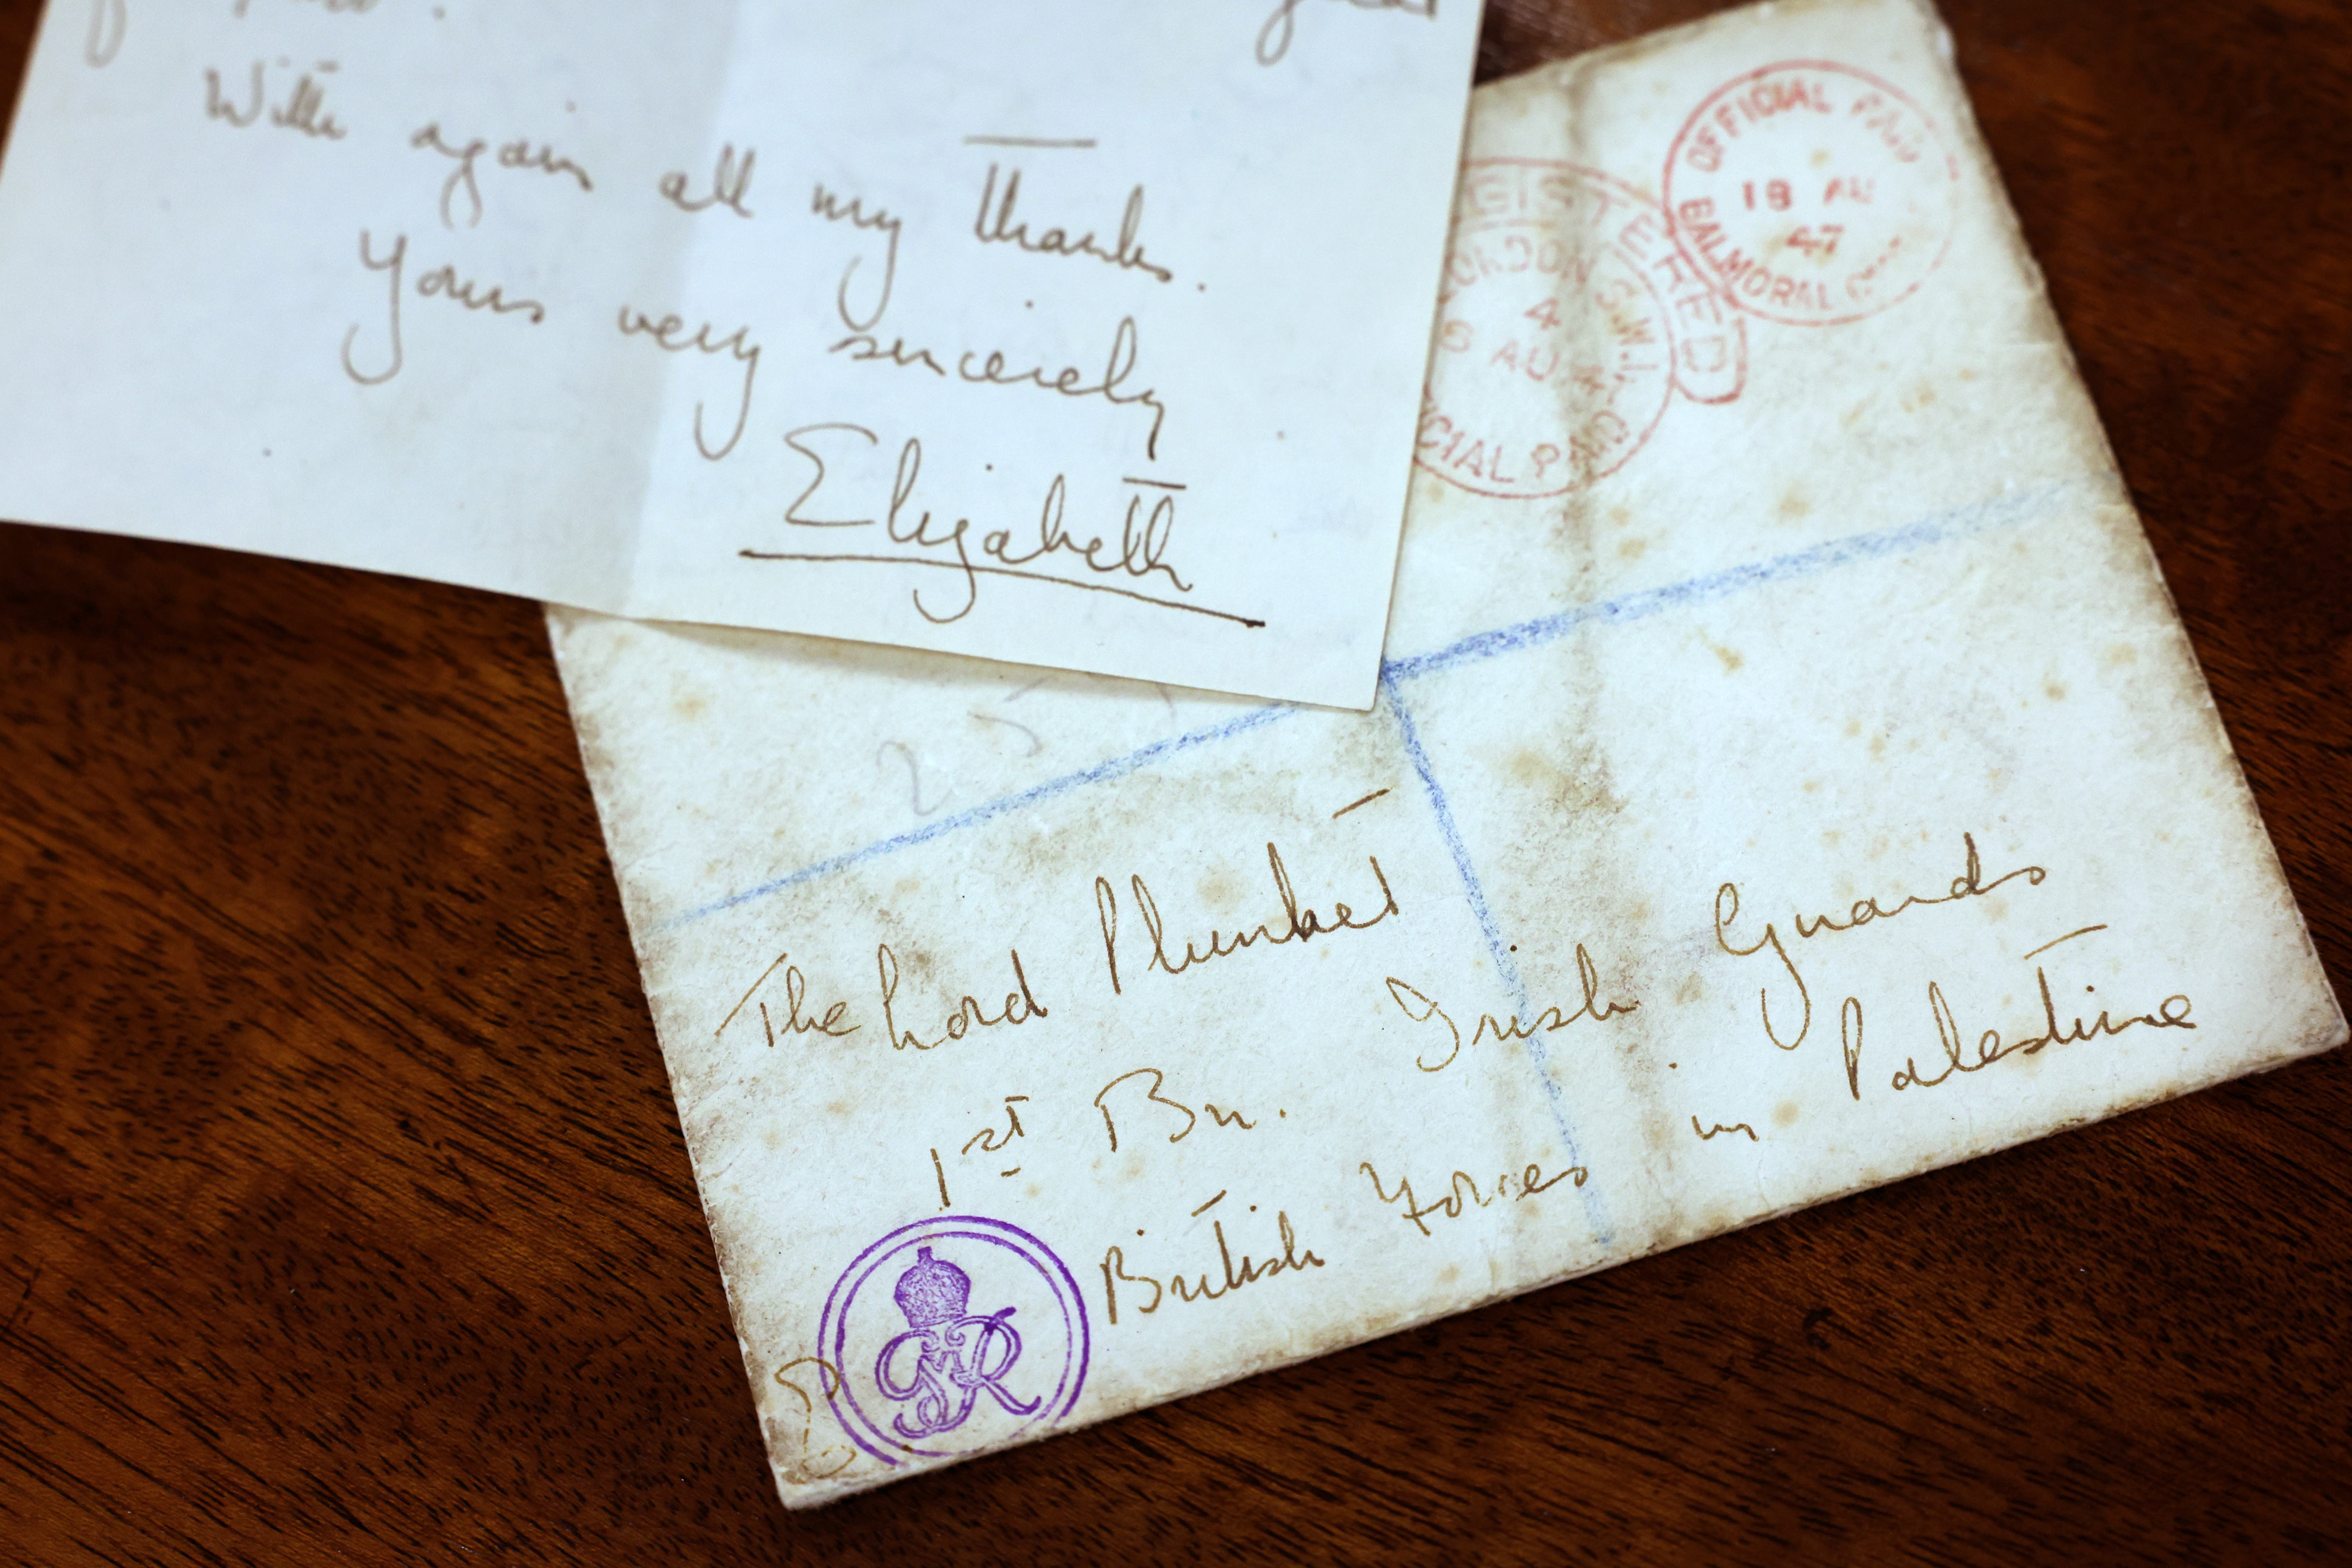 With again all my thanks.
Yours very sincerely
Elizabeth
OFFICIAL PAID
18 AU
47
BALMORAL
GISTERED
LONDON S.W.1.
4
AU 4
CIAL PAID
The Lord Plunket
1st Bn. Irish Guards
British Forces in Palestine
GRVI